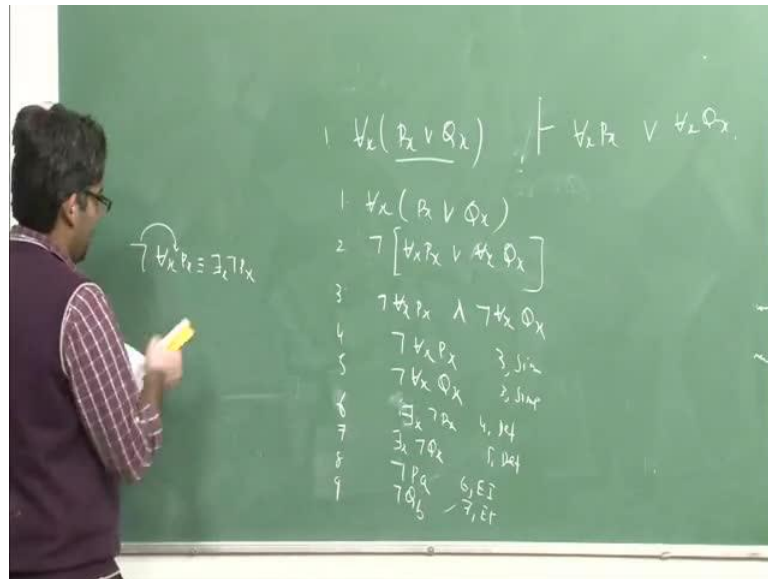 1 ∀x(Px ∨ Qx) ⊢ ∀xPx ∨ ∀xQx.
1. ∀x(Px ∨ Qx)
2 ¬[∀xPx ∨ ∀xQx]
¬∀xPx ≡ ∃x¬Px
3 ¬∀xPx ∧ ¬∀xQx
4 ¬∀xPx 3, Sim
5 ¬∀xQx 3, Simp
6 ∃x¬Px 4, Def
7 ∃x¬Qx 5, Def
8 ¬Pa 6, EI
9 ¬Qb 7, EI